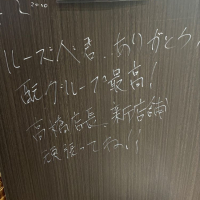 ルーズベ君、ありがとう!
グループ最高!
高橋店長、新店舗
頑張ってね!!